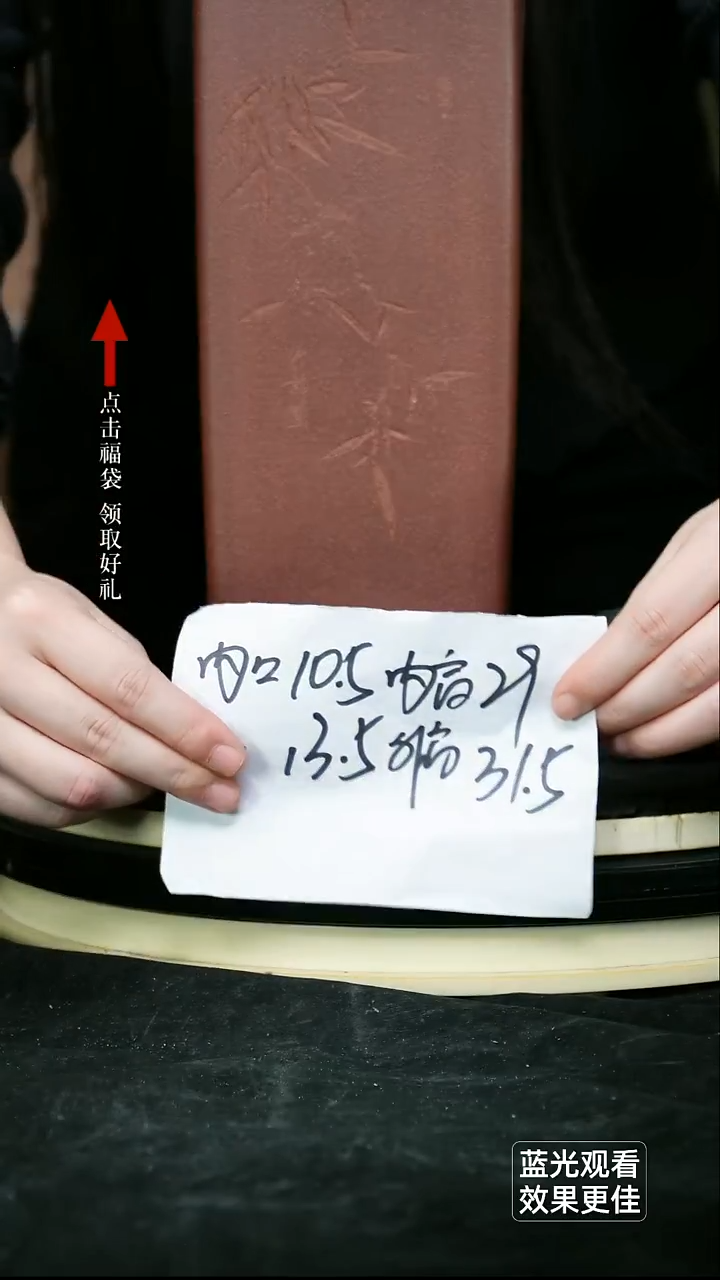 点击福袋 领取好礼
内口10.5 内高29
13.5 外高 31.5
蓝光观看
效果更佳